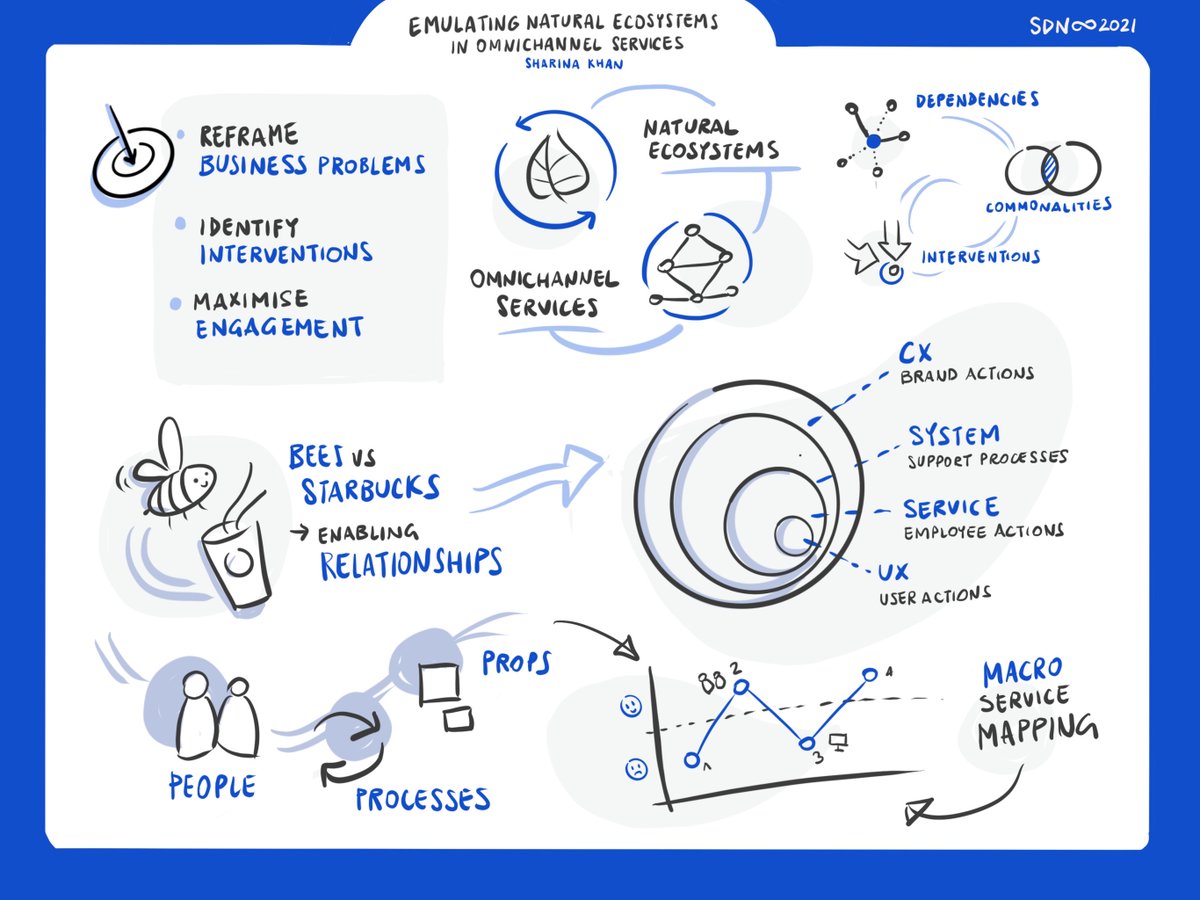 EMULATING NATURAL ECOSYSTEMS
IN OMNICHANNEL SERVICES
SHARINA KHAN
SDN∞2021
REFRAME
BUSINESS PROBLEMS
IDENTIFY
INTERVENTIONS
MAXIMISE
ENGAGEMENT
NATURAL
ECOSYSTEMS
OMNICHANNEL
SERVICES
DEPENDENCIES
COMMONALITIES
INTERVENTIONS
BEES VS
STARBUCKS
→ ENABLING
RELATIONSHIPS
CX
BRAND ACTIONS
SYSTEM
SUPPORT PROCESSES
SERVICE
EMPLOYEE ACTIONS
UX
USER ACTIONS
PEOPLE
PROCESSES
PROPS
1
2
3
4
MACRO
SERVICE
MAPPING